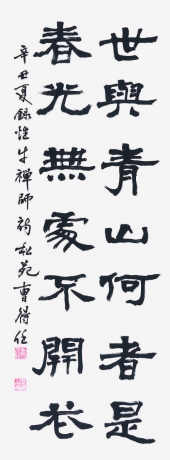 世與青山何者是
春光無處不開花
辛丑夏錄惟牛禪師詩 松苑 曹得任